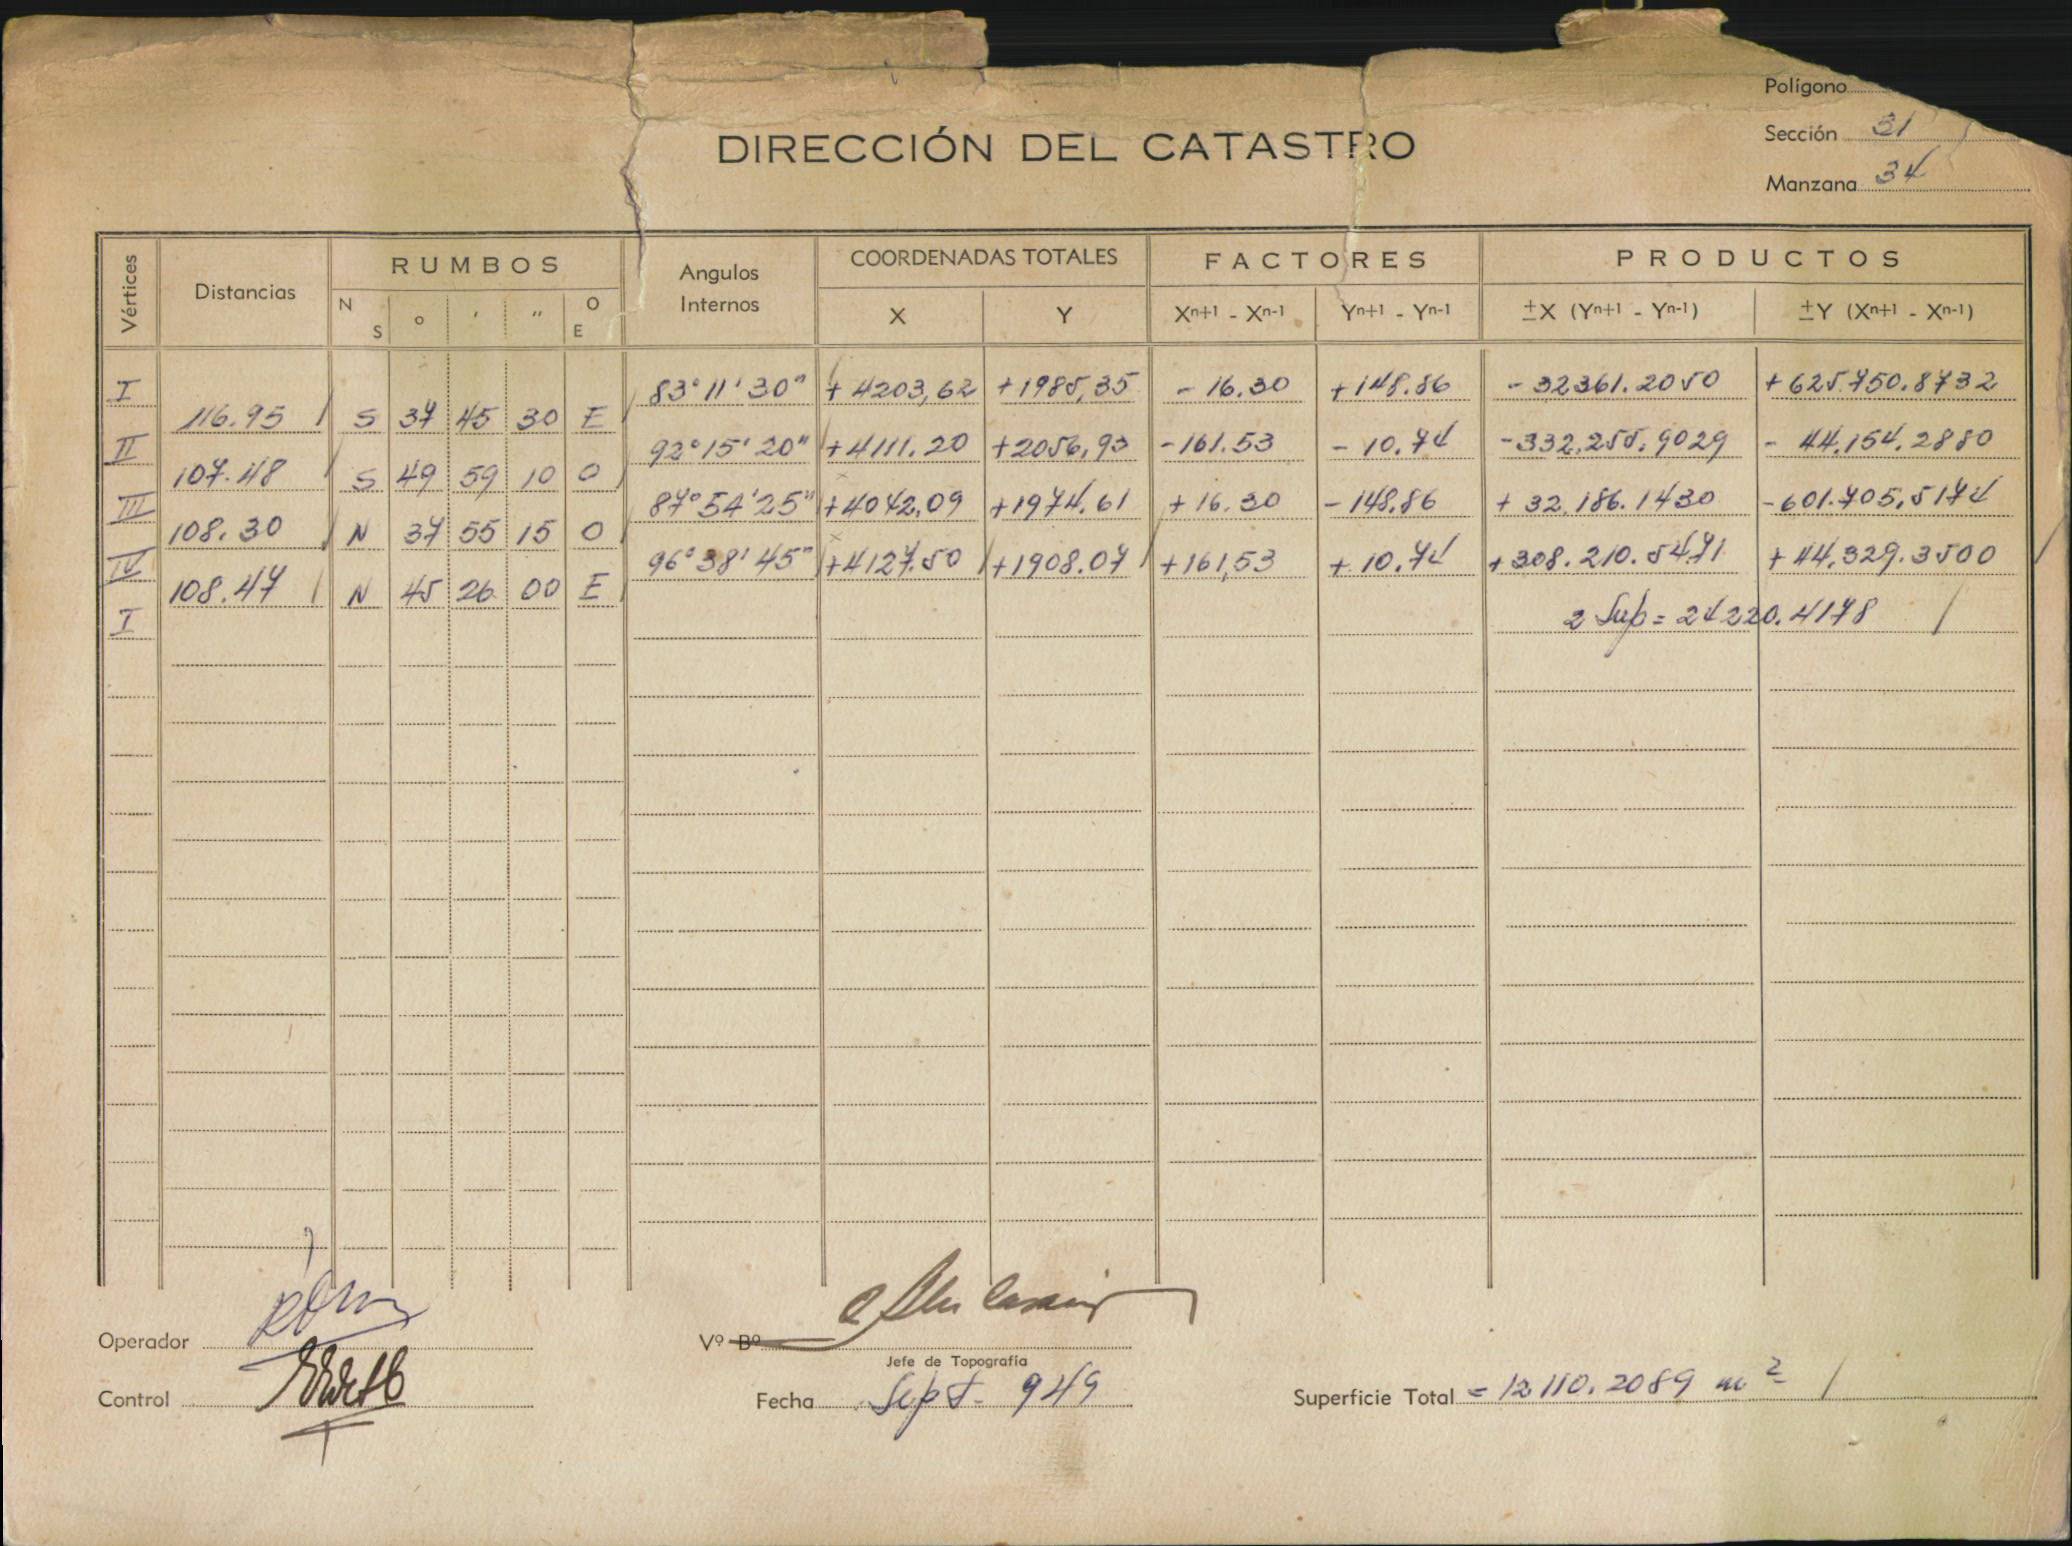 Polígono
DIRECCIÓN DEL CATASTRO
Sección 31
Manzana 34
Vértices Distancias RUMBOS Angulos Internos COORDENADAS TOTALES FACTORES PRODUCTOS
N S ° ' " O E X Y Xⁿ⁺¹ - Xⁿ⁻¹ Yⁿ⁺¹ - Yⁿ⁻¹ ±X (Yⁿ⁺¹ - Yⁿ⁻¹) ±Y (Xⁿ⁺¹ - Xⁿ⁻¹)
I 83° 11' 30" + 4203,62 + 1985,35 - 16.30 + 148.86 - 32361.2050 + 625.750.8732
116.95 S 37 45 30 E
II 92° 15' 20" + 4111.20 + 2056,93 - 161.53 - 10.74 - 332.255.9029 - 44.154.2880
107.48 S 49 59 10 O
III 87° 54' 25" + 4042,09 + 1974.61 + 16.30 - 148.86 + 32.186.1430 - 601.705,5174
108.30 N 37 55 15 O
IV 96° 38' 45" + 4127.50 + 1908.07 + 161,53 + 10.74 + 308.210.5471 + 44.329.3500
108.47 N 45 26 00 E
I 2 Sup = 24220.4178
Operador
Vº Bº
Jefe de Topografía
Control
Fecha Sept. 949
Superficie Total = 12110.2089 m²